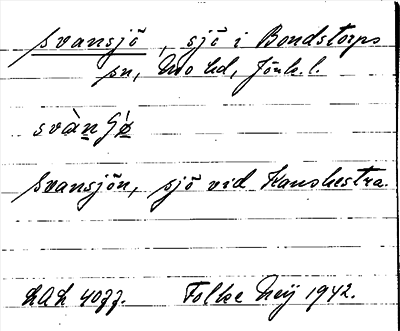 Svansjö, sjö i Bondstorps
sn, Mo hd, Jönk. l.
svànʃǿ
Svansjön, sjö vid Kanshestra.
LAL 4077. Folke Neij 1942.